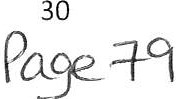 30
Page 79